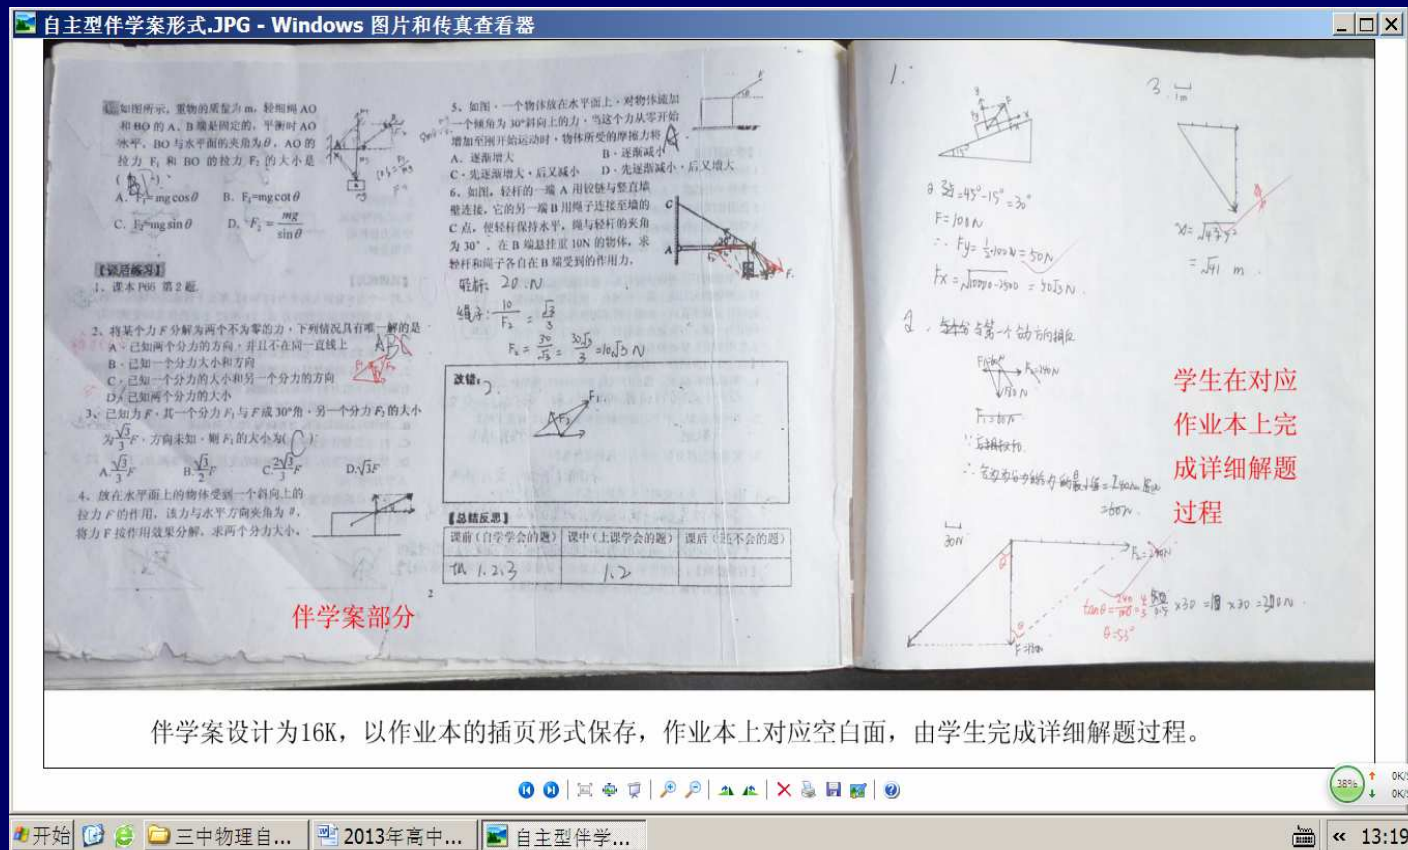 自主型伴学案形式.JPG - Windows 图片和传真查看器
如图所示，重物的质量为 m，轻细绳 AO
和 BO 的 A、B 端是固定的，平衡时 AO
水平，BO 与水平面的夹角为 θ，AO 的
拉力 F₁ 和 BO 的拉力 F₂ 的大小是
A. F₁=mgcosθ B. F₁=mgcotθ
C. F₂=mgsinθ D. F₂ = mg/sinθ
【课后练习】
1、课本 P66 第 2 题
2、将某个力 F 分解为两个不为零的力，下列情况具有唯一解的是
ABC
A、已知两个分力的方向，并且不在同一直线上
B、已知一个分力大小和方向
C、已知一个分力的大小和另一个分力的方向
D、已知两个分力的大小
3、已知力 F，其一个分力 F₁ 与 F 成 30°角，另一个分力 F₂ 的大小
为 √3/3 F，方向未知，则 F₁ 的大小为( C )
A. √3/3 F B. √3/2 F C. 2√3/3 F D. √3F
4、放在水平面上的物体受到一个斜向上的
拉力 F 的作用，该力与水平方向夹角为 θ，
将力 F 按作用效果分解，求两个分力大小。
伴学案部分
5、如图，一个物体放在水平面上，对物体施加
一个倾角为 30°斜向上的力，当这个力从零开始
增加至刚开始运动时，物体所受的摩擦力将 A
A、逐渐增大 B、逐渐减小
C、先逐渐增大，后又减小 D、先逐渐减小，后又增大
6、如图，轻杆的一端 A 用铰链与竖直墙
壁连接，它的另一端 B 用绳子连接至墙的
C 点，使轻杆保持水平，绳与轻杆的夹角
为 30°，在 B 端悬挂重 10N 的物体，求
轻杆和绳子各自在 B 端受到的作用力。
C
A
轻杆: 20 N
绳子: 10/F₂ = √3/3
F₂ = 30/√3 = 30√3/3 = 10√3 N
改错：
2.
【总结反思】
课前（自学学会的题） 课中（上课学会的题） 课后（还不会的题）
1.2.3 1.2
2
1.
15°
=45°-15°=30°
F=100N
∴ Fy=½·100N=50N
Fx=√10000-2500=50√3N.
2.
与第一个分力方向相反
F₂=240N
180N
30N
F₂=240N
θ
F=180N
tanθ=240/180=4/3
θ=53°
×30
3.
1m
x=√4²+5²
=√41 m.
学生在对应
作业本上完
成详细解题
过程
伴学案设计为16K，以作业本的插页形式保存，作业本上对应空白面，由学生完成详细解题过程。
38%
0K/
0K/
开始
三中物理自...
2013年高中...
自主型伴学...
13:19